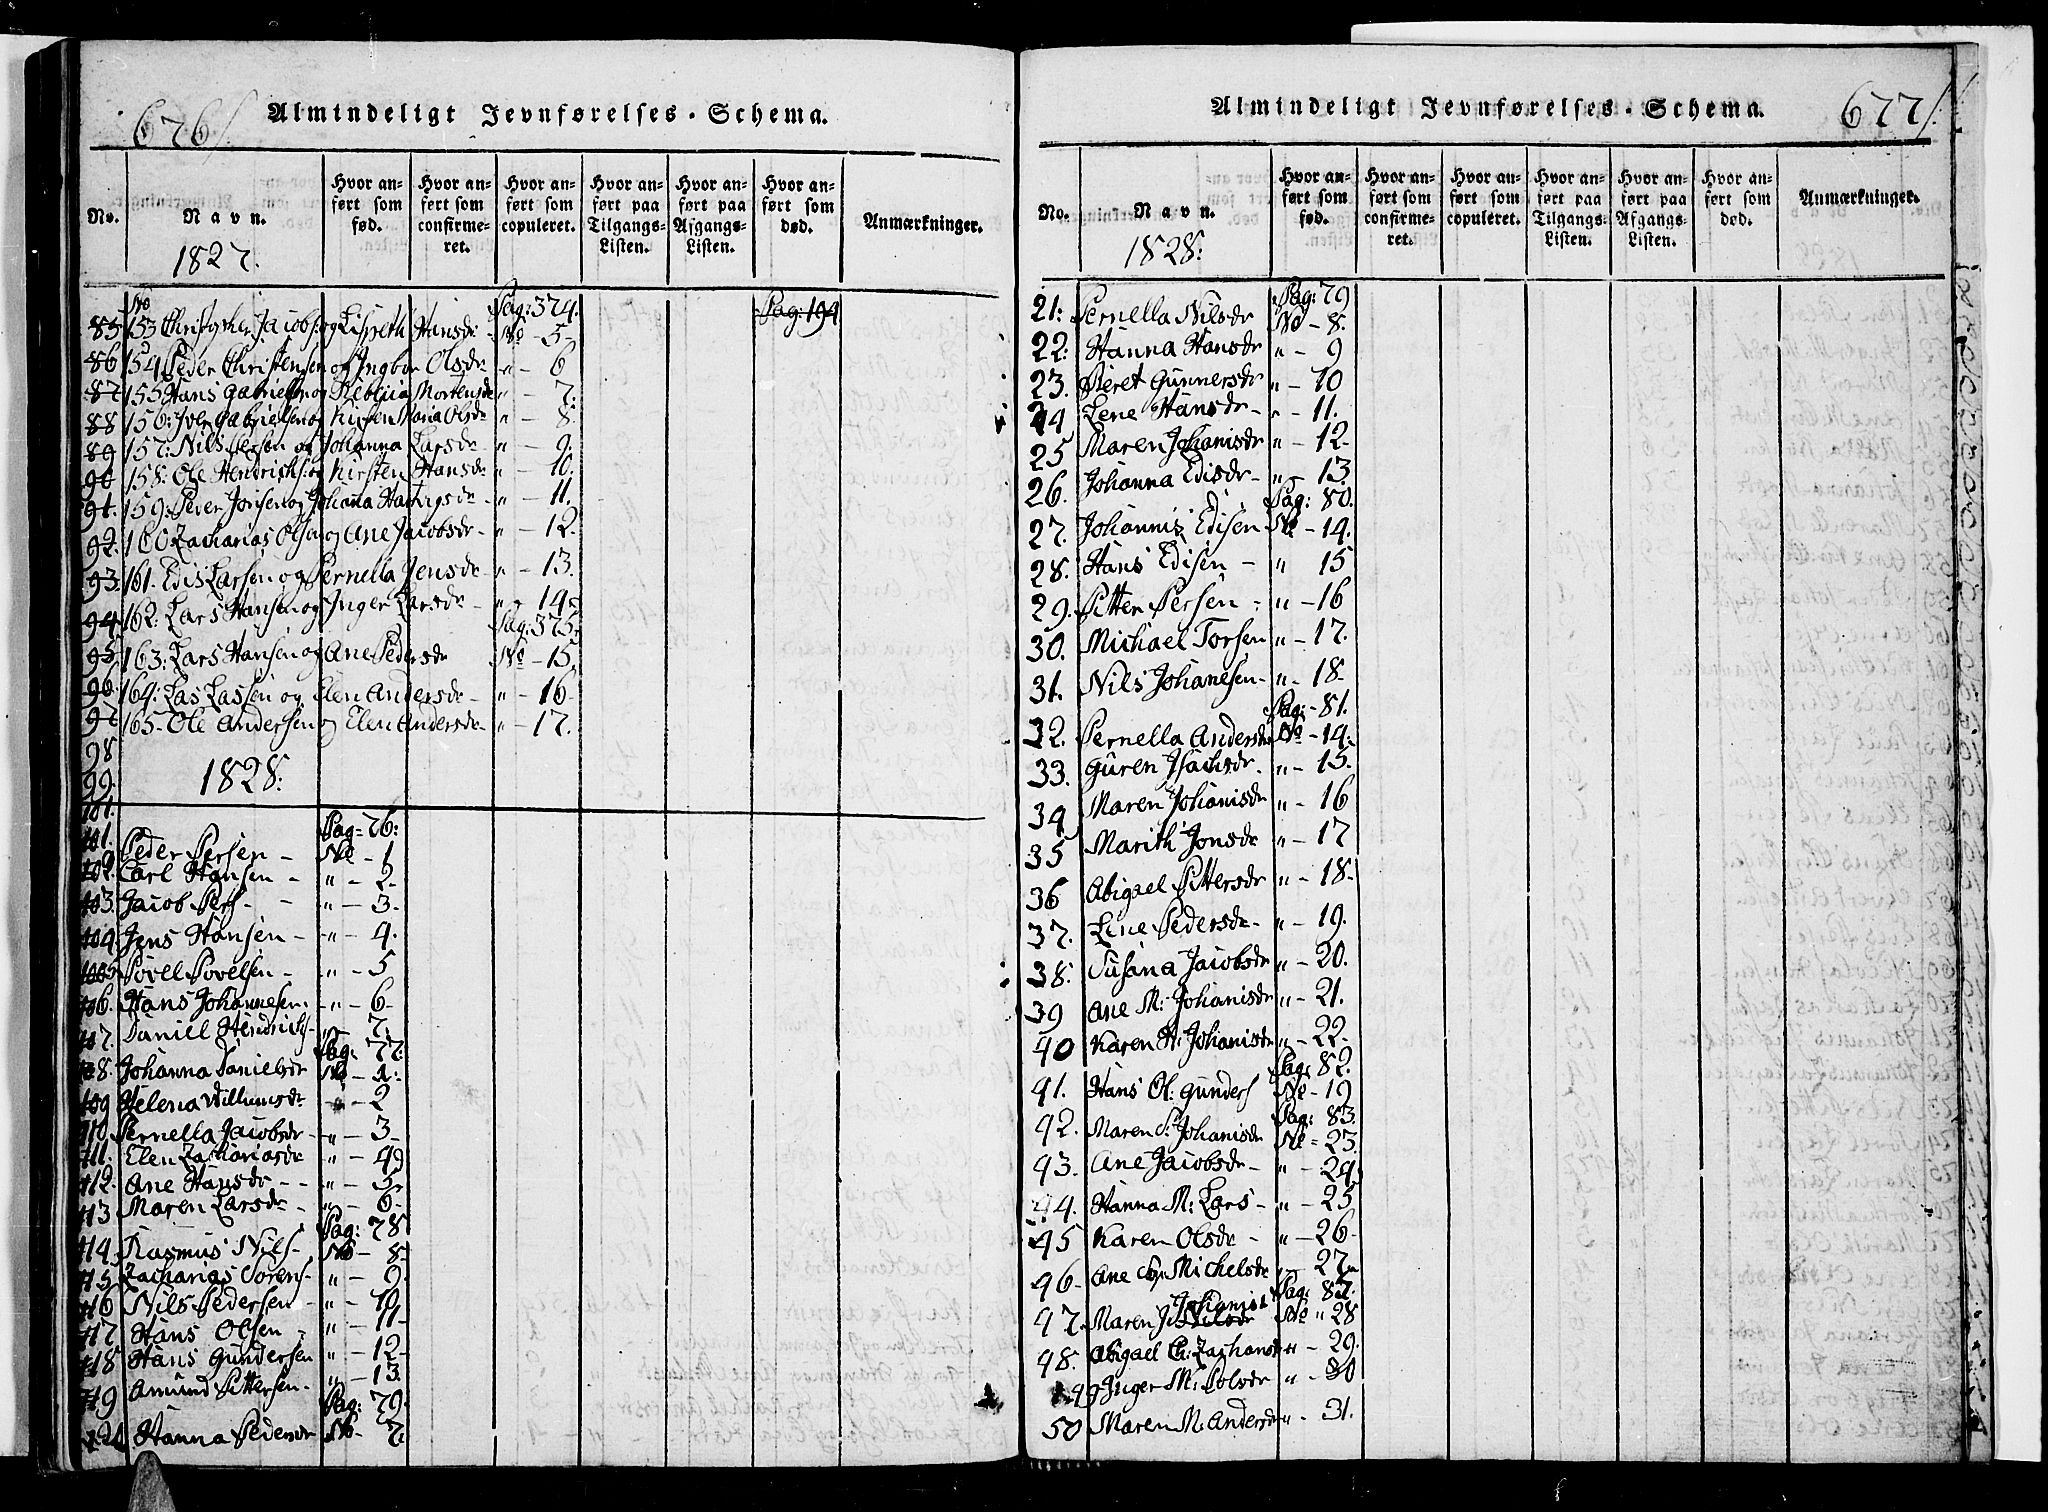 676/.
Almindeligt Jevnførelses-Schema.
No.
Navn.
1827.
Hvor anført som fød.
Hvor anført som confirmeret.
Hvor anført som copuleret.
Hvor anført paa Tilgangs-Listen.
Hvor anført paa Afgangs-Listen.
Hvor anført som død.
Anmærkninger.
No Pag: 374. Pag: 194
85 153 Christopher Jacobs: og Lisbeth Hansdr No - 5-
86 154 Peder Christensen og Ingbor Olsdr " - 6
87 155 Hans Gabrielsen og Mortensdr " - 7:
88 156: Iver Gabrielsen og Kirsten Maria Olsdr " - 8.
89 157: Nils Persen og Johanna Larsdr " - 9.
90 158: Ole Hendrichs: og Kirsten Hansdr " - 10.
91. 159: Peder Jonsen og Johana Hartvigsdr - " - 11.
92. 160 Zacharias Olsen og Ane Jacobsdr - " - 12.
93. 161. Edis Larsen og Pernella Jensdr - " - 13.
94. 162: Lars Hansen og Inger Larsdr - " - 14.
Pag: 375.
95 163: Lars Hansen og Ane Pedersdr No - 15.
96. 164: Las Lassen og Elen Andersdr - " - 16-
97 165- Ole Andersen og Elen Andersdr - " - 17.
98
99. 1828:
101.
Pag = 76:
101. Peder Persen - No - 1
102. Carl Hansen - " - 2.
103. Jacob Pers - - " - 3.
104. Jens Hansen - " - 4.
105 Povell Povelsen - " - 5
106. Hans Johannesen. - " - 6-
107. Daniell Hendrichs - " 7.
Pag: 77:
108. Johanna Danielsdr No - 1:
109 Helena Willumsdr " - 2
110. Pernella Jacobsdr - " - 3-
111. Elen Zachariasdr " - 4
112. Ane Hansdr - - " - 5.
113 Maren Larsdr - " - 6.
Pag: 78
114. Rasmus Nils - No - 8.
115 Zacharias Sorens - " - 9.
116 Nils Pedersen - " - 10
117 Hans Olsen - " - 11-
118 Hans Gundersen " - 12-
119 Amund Pittersen - " - 13.
Pag: 79.
Hanna Pedersdr No - 7.
677/.
Almindeligt Jevnførelses-Schema.
No.
Navn.
1828.
Hvor anført som fød.
Hvor anført som confirmeret.
Hvor anført som copuleret.
Hvor anført paa Tilgangs-Listen.
Hvor anført paa Afgangs-Listen.
Hvor anført som død.
Anmærkninger.
Pag: 79
21: Pernella Nilsdr No - 8.
22: Hanna Hansdr " - 9
23. Beret Gunnersdr " - 10
24 Lene Hansdr - " - 11.
25 Maren Johanisdr " - 12-
26. Johanna Edisdr - " - 13.
Pag: 80.
27. Johannis Edisen No - 14.
28. Hans Edisen - " 15
29. Pitter Persen - " - 16
30. Michael Torsen " - 17.
31. Nils Johanesen - " - 18-
Pag: - 81.
32. Pernella Andersdr No - 14.
33. Guren Isachsdr. " - 15.
34 Maren Johanisdr " - 16
35 Marith Jonsdr " - 17
36 Abigael Pittersdr " - 18-
37. Line Pedersdr - " - 19.
38. Susana Jacobsdr " - 20.
39 Ane M: Johanisdr " - 21.
40 Karen H: Johanisdr " - 22-
Pag: 82.
41. Hans Ol: Gunders No - 19
Pag: 83.
42. Maren S: Johanisdr No = 23.
43. Ane Jacobsdr - " - 24
44. Hanna M: Lars - " - 25
45 Karen Olsdr - " - 26-
46- Ane Michelsdr " - 27-
Johanis Pag:
47. Maren J: Nilsdr No " 28
48. Abigael Ch: Zachariasdr " - 29.
49 Inger M: Polsdr " - 30
50 Maren M: Andersdr " - 31.